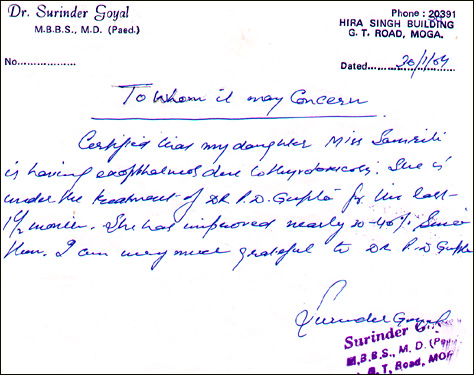 Dr. Surinder Goyal
M.B.B.S., M.D. (Paed.)
Phone : 20391
HIRA SINGH BUILDING
G. T. ROAD, MOGA.
No.
Dated
To whom it may Concern
Certified that my daughter Miss
is having exopthalmos due to thyrotoxicosis. She is
under the treatment of DR P.D. Gupta for the last
1½ months. She has improved nearly 40% Since
then. I am very much grateful to DR P. D Gupta
Surinder Goyal
Surinder G
M.B.B.S., M. D. (Pae
G. T. Road, MO